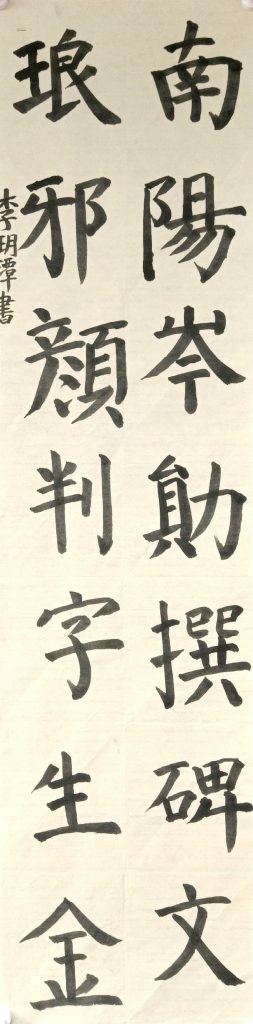 南陽岑勛撰碑文
琅邪顏判字生金
李玥潭書